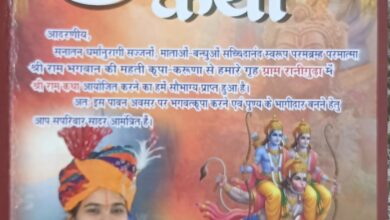 कथा
आदरणीय,
सनातन धर्मानुरागी सज्जनों, माताओं-बन्धुओं सच्चिदानंद स्वरूप परमब्रम्ह परमात्मा
श्री राम भगवान की महती कृपा-करूणा से हमारे गृह ग्राम रानीगुड़ा में
श्री राम कथा आयोजित करने का हमें सौभाग्य प्राप्त हुआ है।
अतः इस पावन अवसर पर भगवत्कृपा करने एवं पुण्य के भागीदार बनने हेतु
आप सपरिवार सादर आमंत्रित है।